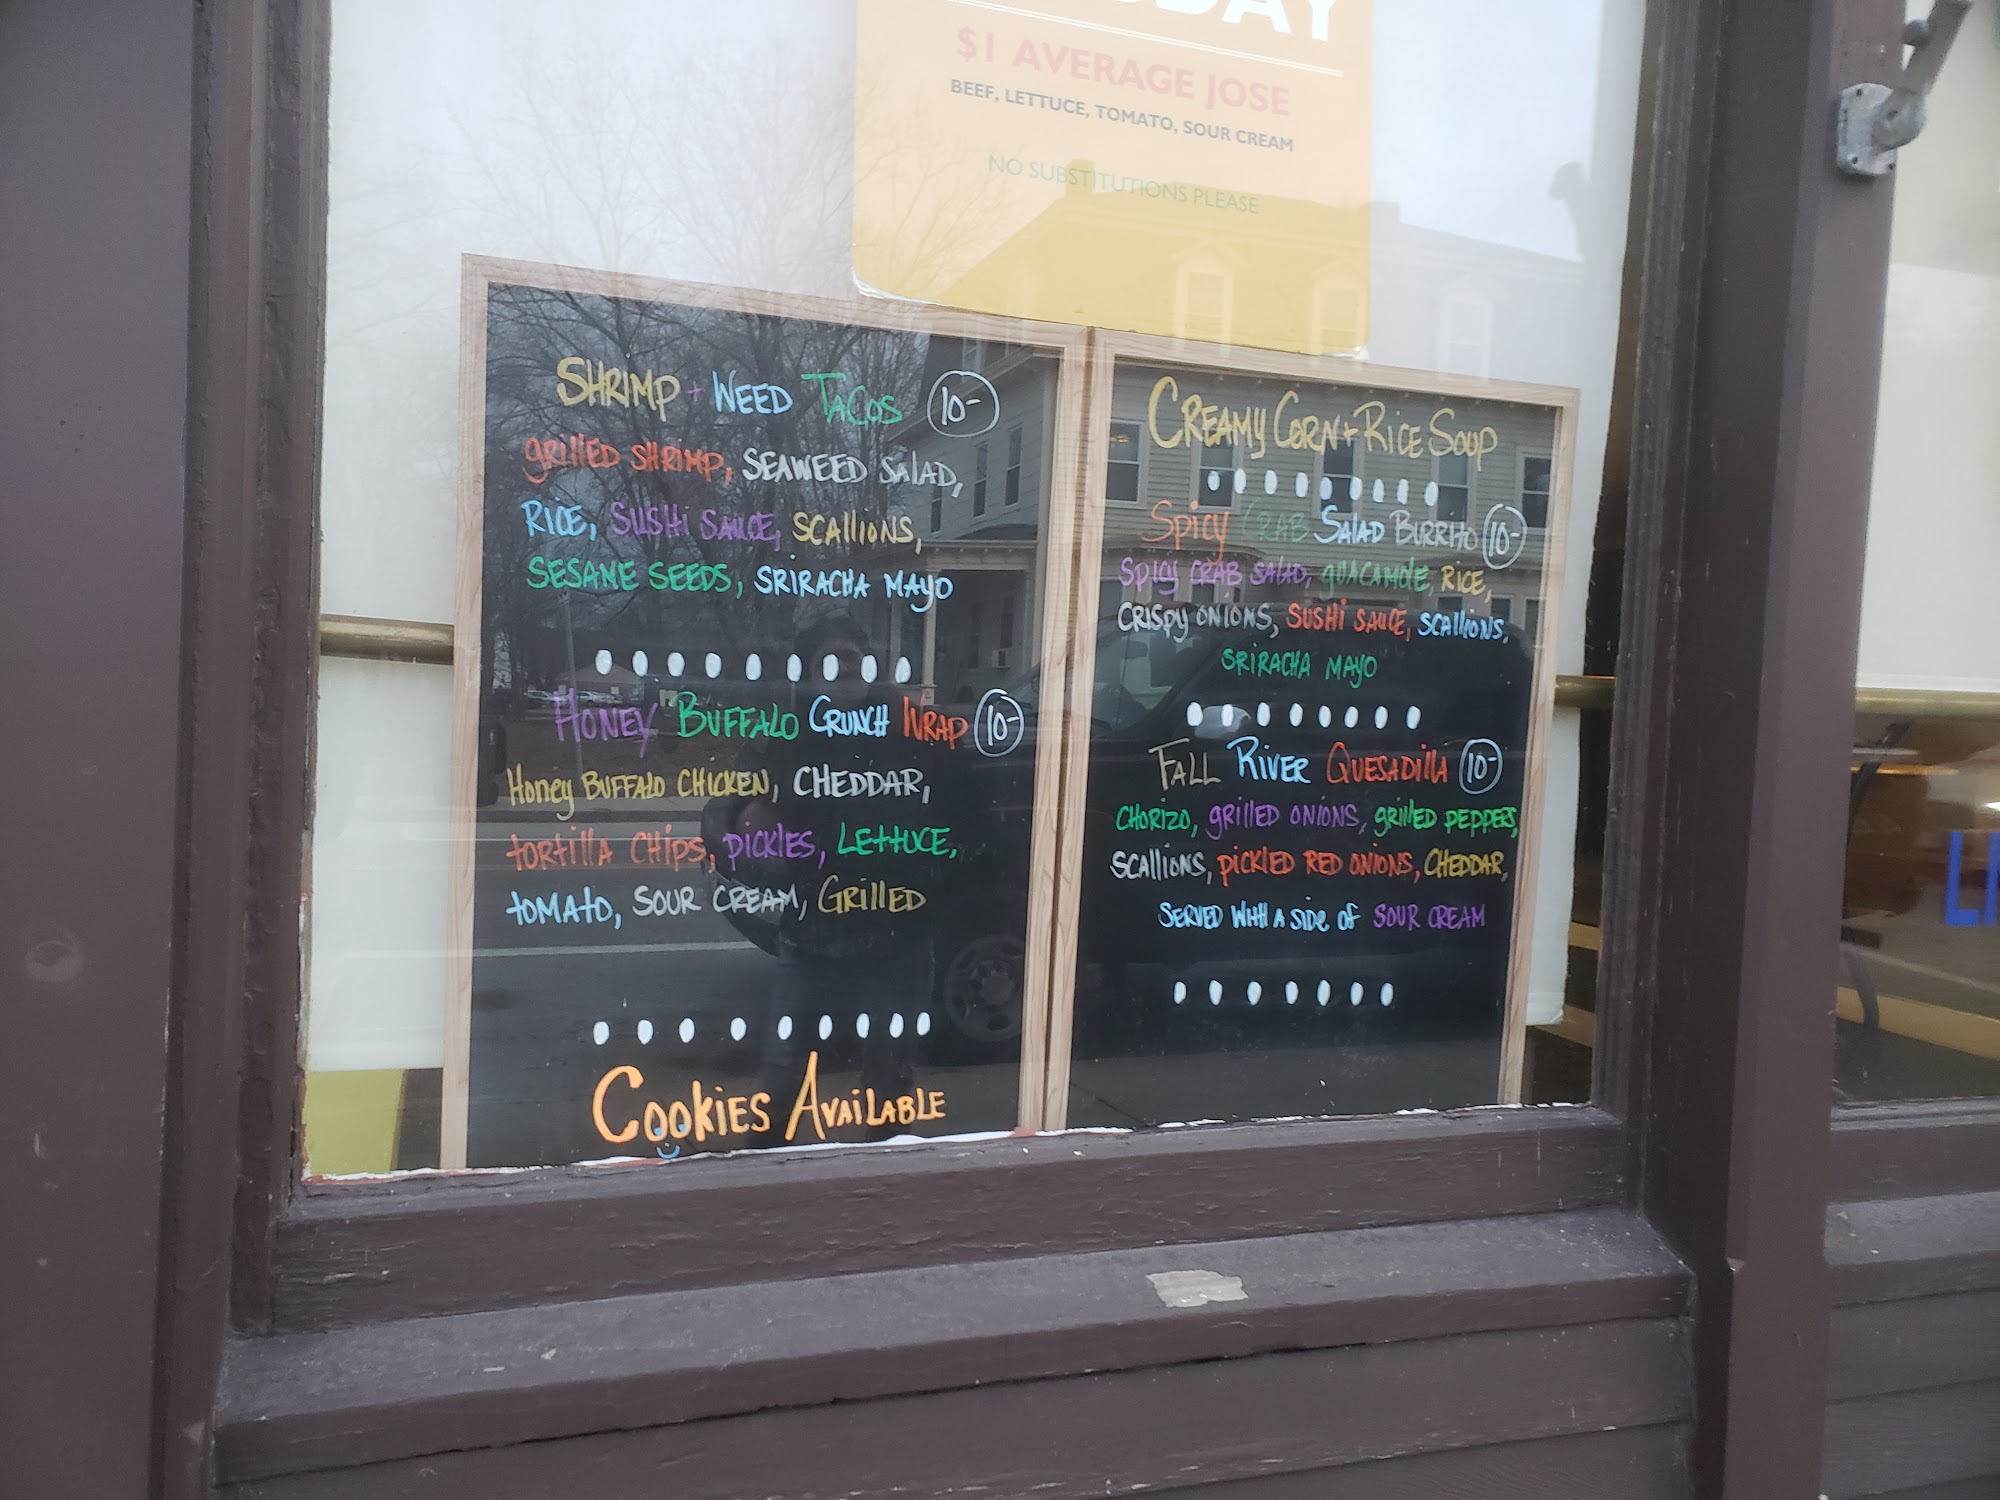 $1 AVERAGE JOSE
BEEF, LETTUCE, TOMATO, SOUR CREAM
NO SUBSTITUTIONS PLEASE
SHRIMP + WEED TACOS 10-
grilled SHRIMP, SEAWEED SALAD,
RICE, SUSHI SAUCE, SCALLIONS,
SESAME SEEDS, SRIRACHA MAYO
HONEY BUFFALO CRUNCH WRAP 10-
Honey BUFFALO CHICKEN, CHEDDAR,
tortilla CHIPS, PICKLES, LETTUCE,
tOMAtO, SOUR CREAM, GRILLED
COOKIES AVAILABLE
CREAMY CORN + RICE SOUP
Spicy CRAB SALAD BURRITO 10-
SPICY CRAB SALAD, gUACAMOLE, RICE,
CRISPY ONIONS, SUSHI SAUCE, SCALLIONS,
SRIRACHA MAYO
FALL RIVER QUESADILLA 10-
CHORIZO, grilled ONIONS, grilled PEPPERS,
SCALLIONS, PICKLED RED ONIONS, CHEDDAR,
SERVED WITH A SIDE OF SOUR CREAM